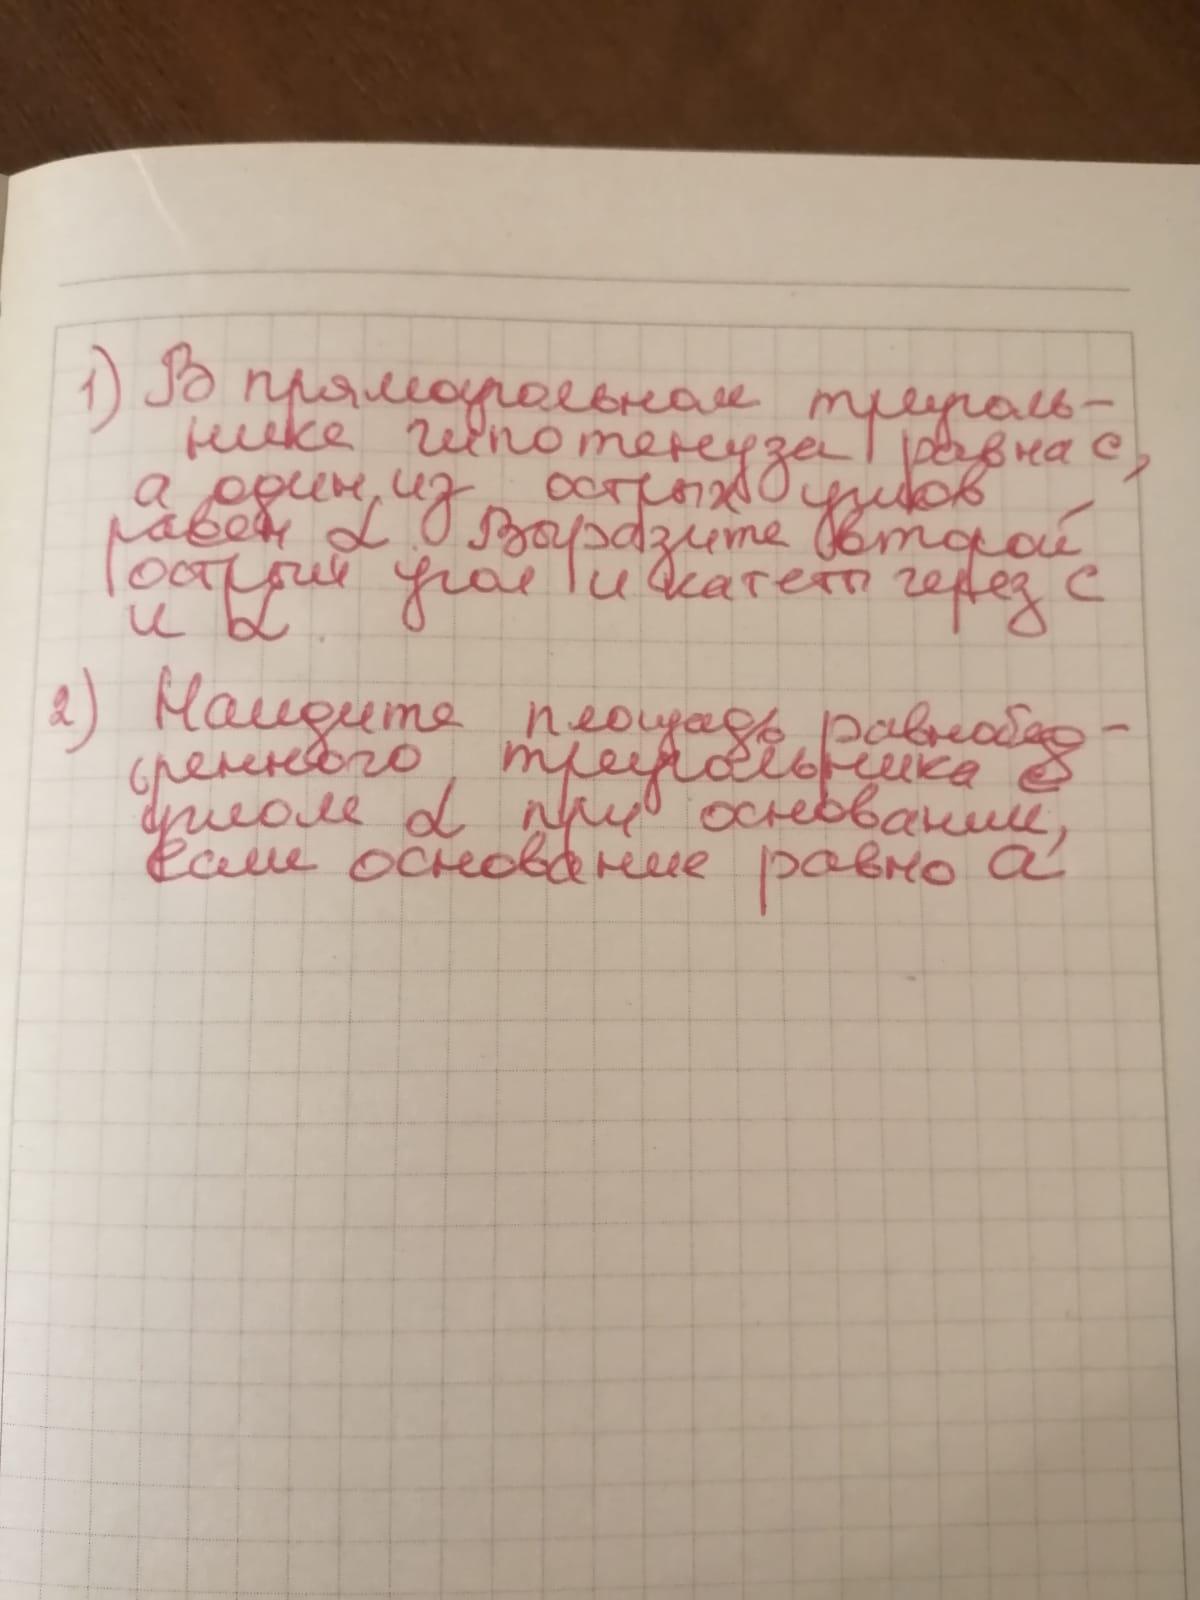 1) В прямоугольном треуголь-
нике гипотенуза равна c,
а один из острых углов
равен α. Выразите второй
острый угол и катеты через c
и α.
2) Найдите площадь равнобед-
ренного треугольника с
углом α при основании,
если основание равно a